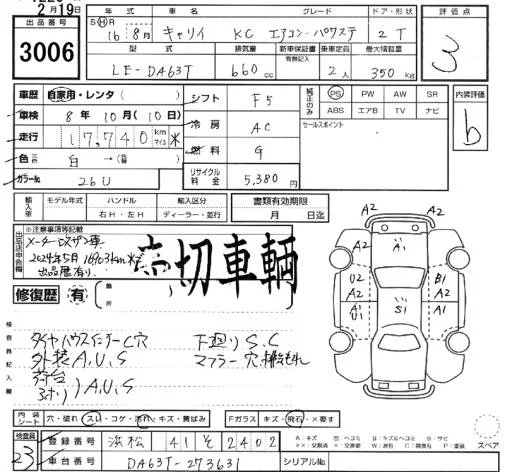 2月19日
出品番号 3006
年式 車名 グレード ドア・形状 評価点
S H R 16年 8月 キャリイ KC エアコン・パワステ 2 T 3
型式 排気量 新車保証書 有無記入 乗車定員 最大積載量
LE-DA63T 660cc 2人 350kg
車歴 自家用・レンタ ( ) シフト F5 純正のみ PS PW AW SR 内装評価
車検 8年 10月 (10日) ABS エアB TV ナビ b
走行 17,740 km マイル ※ 冷房 AC セールスポイント
色 白 → 燃料 G
カラーNo. 26U リサイクル料金 5,380円
輸入車 モデル年式 ハンドル 輸入区分 書類有効期限
年 右H・左H ディーラー・並行 月 日迄
出品店申告欄 ※注意事項等記載
メーター改ザン車
2024年5月
出品歴有り.
切車輌
修復歴 有 箇所
A2 A2
A1
U2 B1
A2 A2
U1 S1
A2 A2
検査員記入欄
タイヤハウスインナーC穴 下廻りS.C
外装A.U.S マフラー穴
荷台
A.U.S
内装シート 穴・破れ・スレ・コゲ・汚れ・キズ・黄ばみ Fガラス キズ・飛石・×要す
検査員 23
登録番号 浜松 41 そ 2402
A：キズ U：ヘコミ B：キズ&ヘコミ S：サビ
スペア
車台番号 DA63T-273631 シリアルNo.